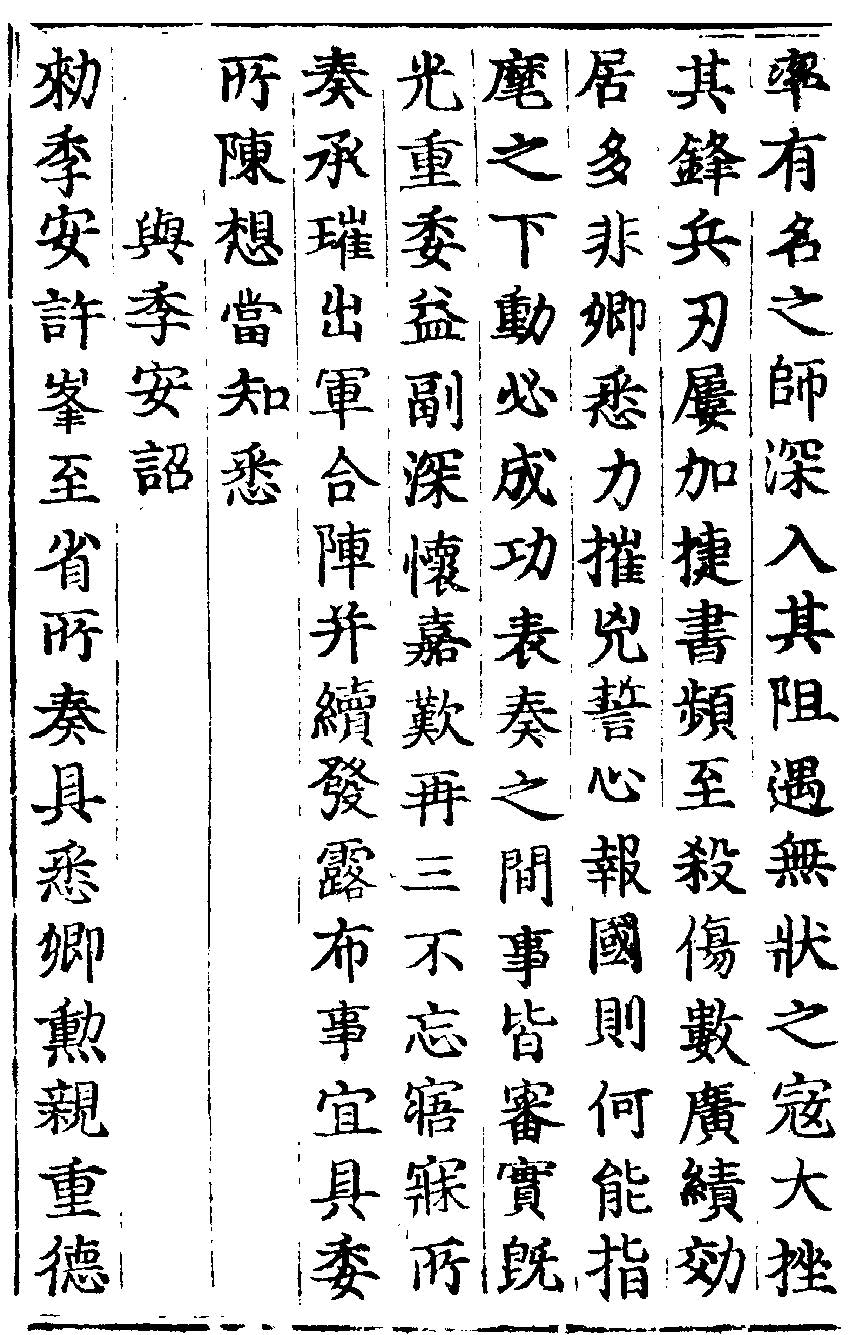 率有名之師深入其阻遇無狀之宼大挫
其鋒兵刃屢加捷書頻至殺傷數廣績効
居多非卿悉力摧兇誓心報國則何能指
麾之下動必成功表奏之間事皆審實旣
光重委益副深懷嘉歎再三不忘寤寐所
奏承璀出軍合陣并續發露布事宜具委
所陳想當知悉
與季安詔
勑季安許峯至省所奏具悉卿勲親重德